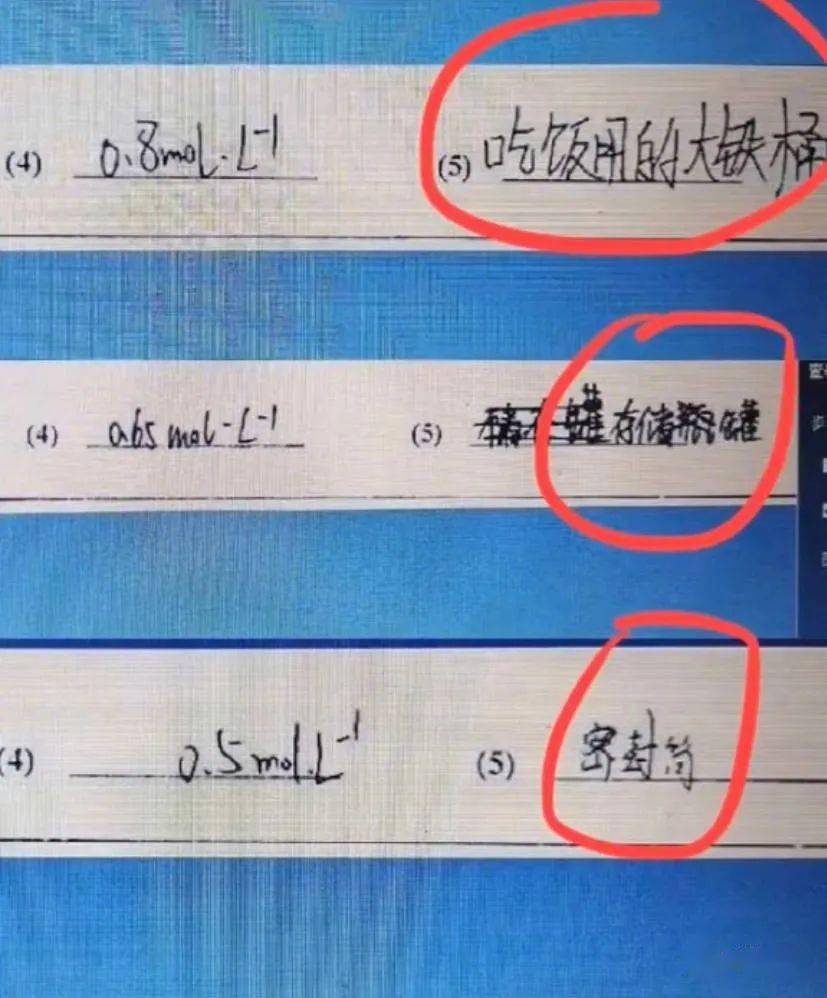 (4) 0.8mol·L⁻¹ (5) 吃饭用的大铁桶
(4) 0.65mol·L⁻¹ (5) 存储罐
(4) 0.5mol·L⁻¹ (5) 密封筒